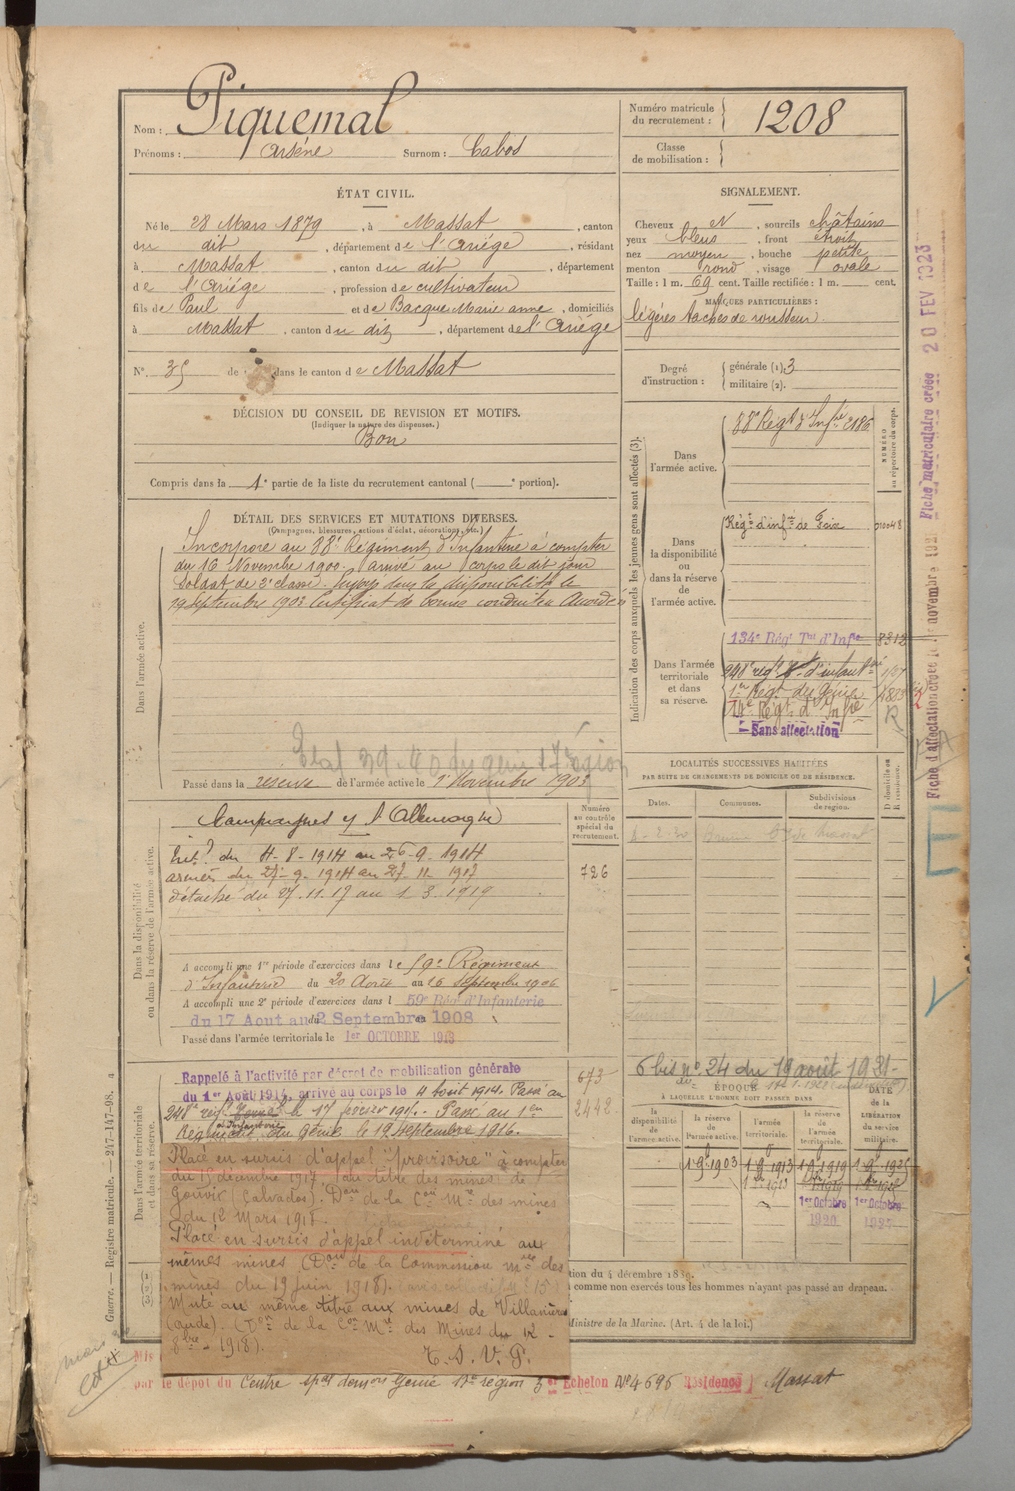 Nom : Piquemal
Prénoms : Arsène Surnom : Cabos
Numéro matricule du recrutement : 1208
Classe de mobilisation :
ÉTAT CIVIL.
Né le 28 Mars 1879, à Massat, canton
du dit, département de l'Ariége, résidant
à Massat, canton du dit, département
de l'Ariége, profession de cultivateur
fils de Paul et de Bacque Marie anne, domiciliés
à Massat, canton du dit, département de l'Ariége
N° 35 de dans le canton de Massat
DÉCISION DU CONSEIL DE REVISION ET MOTIFS.
(Indiquer la nature des dispenses.)
Bon
Compris dans la 1e partie de la liste du recrutement cantonal ( e portion).
SIGNALEMENT.
Cheveux et, sourcils châtains
yeux bleus, front étroit
nez moyen, bouche petite
menton rond, visage ovale
Taille : 1 m. 69 cent. Taille rectifiée : 1 m. cent.
MARQUES PARTICULIÈRES :
légères taches de rousseur
Degré d'instruction : générale (1). 3
militaire (2).
DÉTAIL DES SERVICES ET MUTATIONS DIVERSES.
(Campagnes, blessures, actions d'éclat, décorations, etc.)
Dans l'armée active.
Incorporé au 88e Régiment d'Infanterie à compter
du 16 Novembre 1900. arrivé au corps le dit jour
Soldat de 2e classe. Envoyé dans la disponibilité le
19 Septembre 1903 Certificat de bonne conduite Accordé
Passé dans la réserve de l'armée active le 1er Novembre 1903
Indication des corps auxquels les jeunes gens sont affectés (3).
NUMÉRO au répertoire du corps.
Dans l'armée active.
88e Régt d'Infie 2186
Dans la disponibilité ou dans la réserve de l'armée active.
Régt d'infie de Foix
Dans l'armée territoriale et dans sa réserve.
134e Régt Tal d'Infie 8312
1er Régt du Génie
Sans affectation
Fiche matriculaire créée 20 FEV 1923
Fiche d'affectation créée le novembre 192
Dans la disponibilité ou dans la réserve de l'armée active.
Campagnes c/ l'Allemagne
Intr du 4-8-1914 au 26-9-1914
armées du 27-9-1914 au 27-11-1917
détaché du 27.11.17 au 1 3 1919
Numéro au contrôle spécial du recrutement.
726
A accompli une 1re période d'exercices dans le 59e Régiment
d'Infanterie du 20 Août au 16 Septembre 1906
A accompli une 2e période d'exercices dans l 59e Régt d'Infanterie
du 17 Aout au 2 Septembre 1908
Passé dans l'armée territoriale le 1er OCTOBRE 1913
LOCALITÉS SUCCESSIVES HABITÉES
PAR SUITE DE CHANGEMENTS DE DOMICILE OU DE RÉSIDENCE.
Dates. Communes. Subdivisions de région. D domicile ou R résidence.
6 bis no 24 du 19 août 1921
Dans l'armée territoriale et dans sa réserve.
Rappelé à l'activité par décret de mobilisation générale
du 1er Août 1914, arrivé au corps le 4 Août 1914. Passé au
Passé au 1er
Régiment du Génie le 19 septembre 1916.
673
2442
Placé en sursis d'appel "provisoire" à compter
du 15 décembre 1917 au titre des mines de
Gouvix (Calvados). Don de la Con Mre des mines
du 12 Mars 1918.
Placé en sursis d'appel indéterminé aux
mêmes mines (Don de la Commission mre des
mines du 19 juin 1918).
Muté au même titre aux mines de Villanière
(aude). (Don de la Con Mre des Mines du 12 -
8bre - 1918).
T. S. V. P.
ÉPOQUE
À LAQUELLE L'HOMME DOIT PASSER DANS
la disponibilité de l'armée active. la réserve de l'armée active. l'armée territoriale. la réserve de l'armée territoriale.
DATE de la LIBÉRATION DU service militaire.
1 9bre 1903 1 9bre 1913 1 9bre 1919 1 9bre 1925
1er Octobre 1920 1er Octobre
tion du 4 décembre 1889.
comme non exercés tous les hommes n'ayant pas passé au drapeau.
Ministre de la Marine. (Art. 4 de la loi.)
Guerre. — Registre matricule. — 247-147-98.
par le dépôt du Centre génie 17e région 3er Echelon No 4696 Résidence Massat